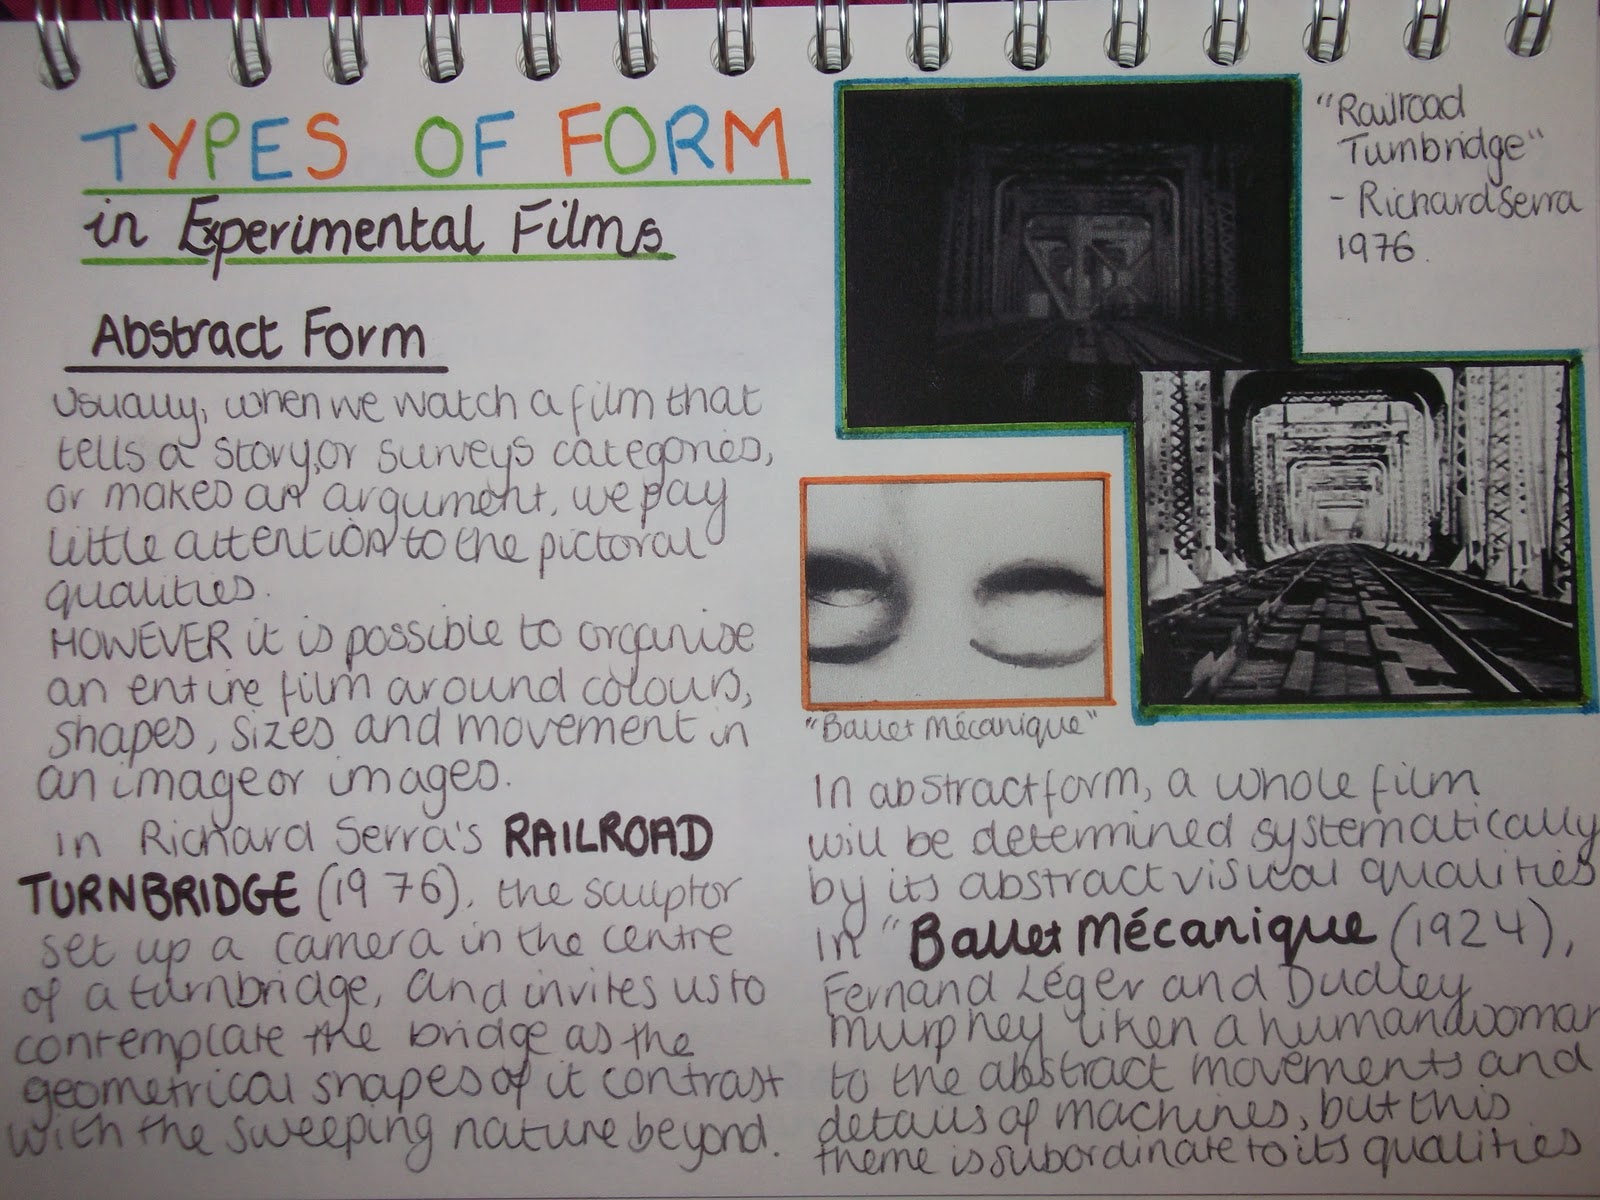 TYPES OF FORM
in Experimental Films
Abstract Form
Usually, when we watch a film that
tells a story, or surveys categories,
or makes an argument, we pay
little attention to the pictoral
qualities.
HOWEVER it is possible to organise
an entire film around colours,
shapes, sizes and movement in
an image or images.
in Richard Serra's RAILROAD
TURNBRIDGE (1976), the sculptor
set up a camera in the centre
of a turnbridge, and invites us to
contemplate the bridge as the
geometrical shapes of it contrast
with the sweeping nature beyond.
"Railroad
Turnbridge"
- Richard Serra
1976.
"Ballet Mécanique"
In abstract form, a whole film
will be determined systematically
by its abstract visual qualities
in "Ballet Mécanique (1924),
Fernand Léger and Dudley
Murphey liken a human woman
to the abstract movements and
details of machines, but this
theme is subordinate to its qualities